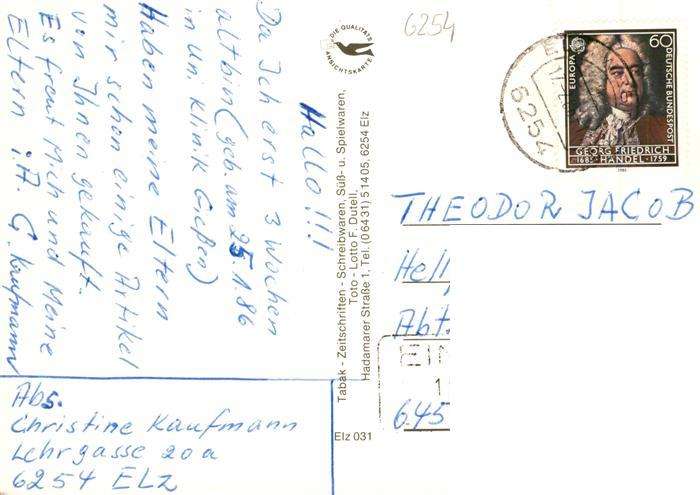 Hallo!!!
Da Ich erst 3 Wochen
alt bin (geb. am 25.1.86
in Uni Klinik Gießen)
Haben meine Eltern
mir schon einige Artikel
von Ihnen gekauft.
Es freut Mich und Meine
Eltern i.A. C. Kaufmann
Abs.
Christine Kaufmann
Lehrgasse 20a
6254 ELZ
DIE QUALITÄTS
ANSICHTSKARTE
Tabak - Zeitschriften - Schreibwaren, Süß- u. Spielwaren,
Toto - Lotto F. Dutell,
Hadamarer Straße 1, Tel. (06431) 51405, 6254 Elz
Elz 031
6254
6254
EUROPA
60
DEUTSCHE BUNDESPOST
GEORG FRIEDRICH
1685 · HÄNDEL · 1759
THEODOR JACOB
Hell
Abt.
645